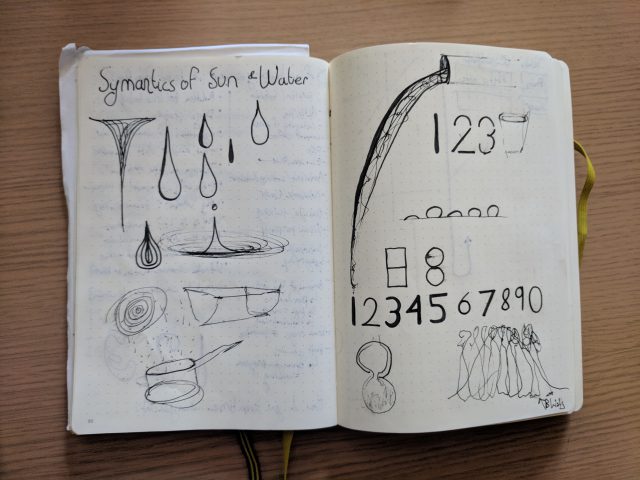 Symantics of Sun & Water
123
8
1234567890